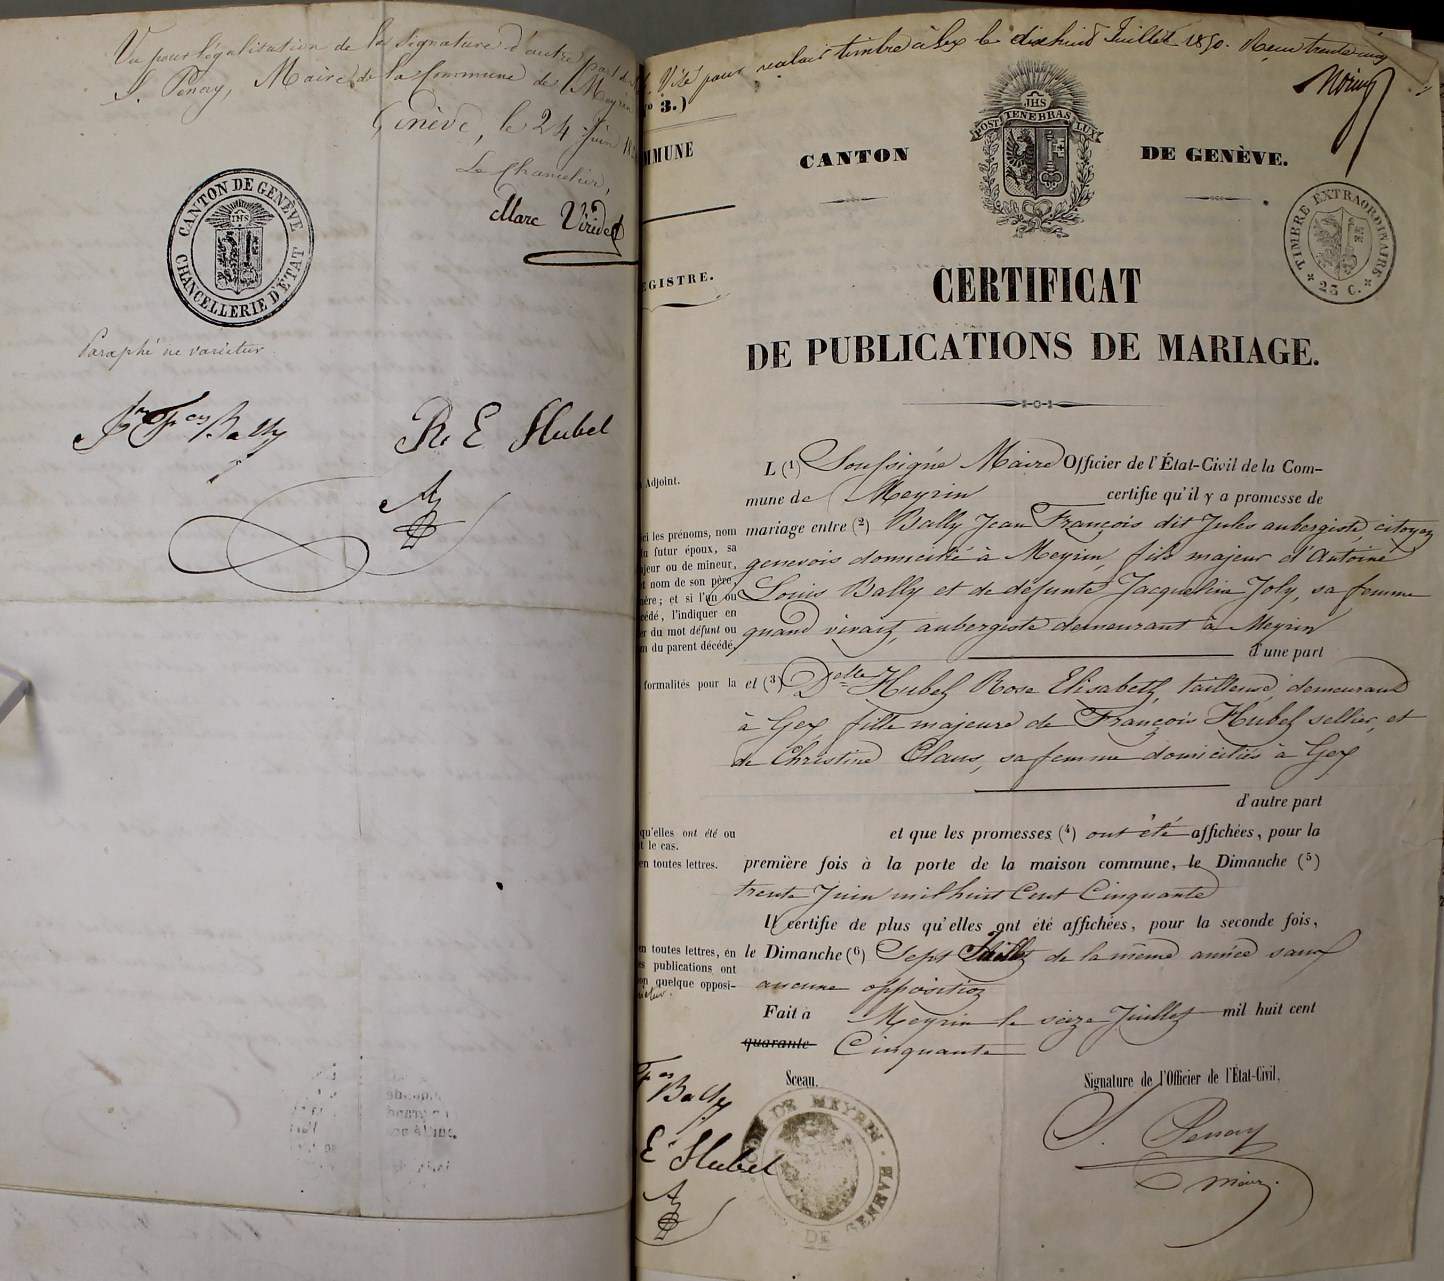 Vu pour légalisation de la signature d'autre part de
S. Penay, Maire de la Commune de Meyrin
Genève, le 24 Juin
Le Chancelier,
Marc Viridet
CANTON DE GENÈVE
CHANCELLERIE D'ÉTAT
JHS
Paraphé ne varietur
Jn Fçois Bally R. E Hubel
Visé pour valoir timbre à Gex le dixhuit Juillet 1850. Reçu trente cinq
3.)
MMUNE
EGISTRE.
JHS
POST TENEBRAS LUX
CANTON DE GENÈVE.
TIMBRE EXTRAORDINAIRE
* 25 C. *
CERTIFICAT
DE PUBLICATIONS DE MARIAGE.
L (1) Soussigné Maire Officier de l'État-Civil de la Com-
Adjoint.
mune de Meyrin certifie qu'il y a promesse de
mariage entre (2) Bally Jean François dit Jules aubergiste, citoyen
genevois domicilié à Meyrin, fils majeur d'Antoine
Louis Bally et de défunte Jacqueline Joly, sa femme
quand vivait, aubergiste demeurant à Meyrin
d'une part
ci les prénoms, nom
futur époux, sa
jeur ou de mineur,
nom de son père,
ère; et si l'un ou
cédé, l'indiquer en
du mot défunt ou
du parent décédé.
formalités pour la
et (3) Delle Hubel Rose Elisabeth, tailleuse, demeurant
à Gex, fille majeure de François Hubel sellier, et
de Christine Claus, sa femme domiciliés à Gex
d'autre part
qu'elles ont été ou
t le cas.
en toutes lettres.
et que les promesses (4) ont été affichées, pour la
première fois à la porte de la maison commune, le Dimanche (5)
trente Juin mil huit Cent Cinquante
Il certifie de plus qu'elles ont été affichées, pour la seconde fois,
en toutes lettres, en
publications ont
quelque opposi-
le Dimanche (6) Sept Juillet de la même année sans
aucune opposition
Fait à Meyrin le seize Juillet mil huit cent
quarante Cinquante
Sceau.
Signature de l'Officier de l'État-Civil,
Bally
E Hubel
COM. DE MEYRIN
DE GENEVE
S. Penay
maire.